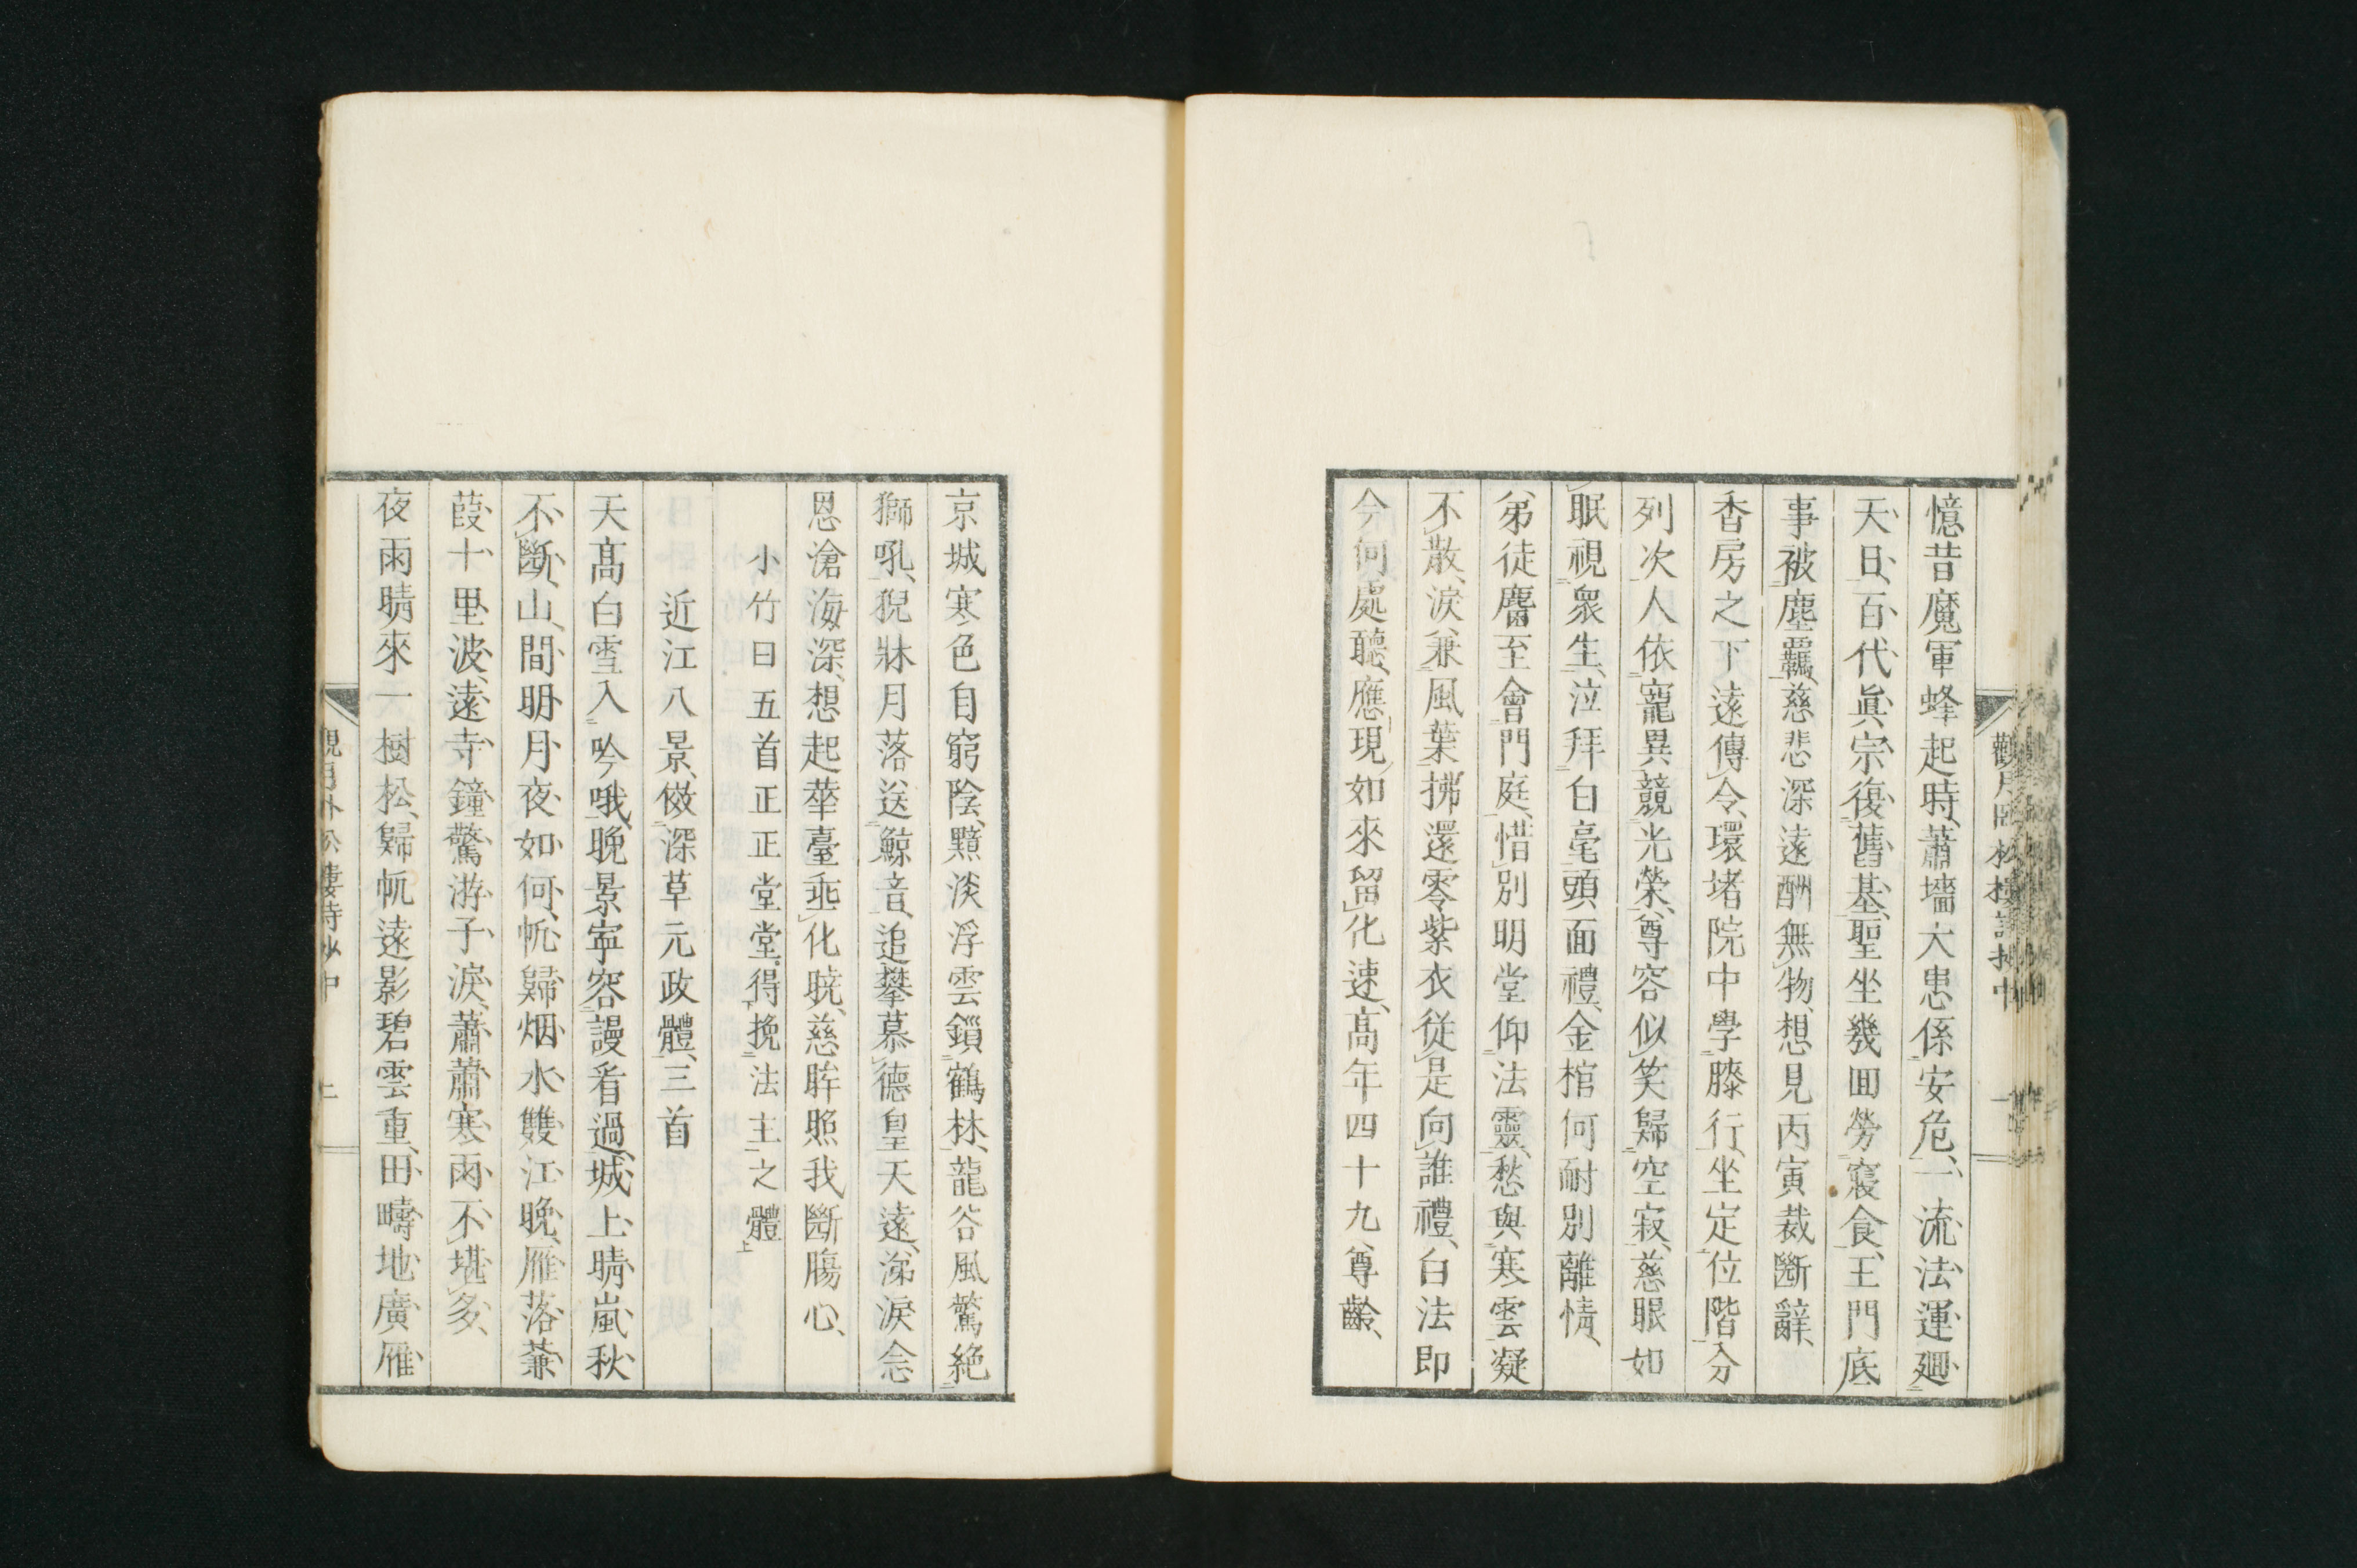 憶昔魔軍蜂起時、蕭墻大患係安危、一流法運廻
天日、百代眞宗復舊基、聖坐幾回勞寢食、王門底
事被塵羈、慈悲深遠酬無物、想見丙寅裁斷辭、
香房之下遠傳令、環堵院中學膝行、坐定位階分
列次、人依寵異競光榮、尊容似笑歸空寂、慈眼如
眠視衆生、泣拜白毫頭面禮、金棺何耐別離情、
弟徒麕至會門庭、惜別明堂仰法靈、愁與寒雲凝
不散、淚兼風葉拂還零、紫衣從是向誰禮、白法即
今何處聽、應現如來留化速、高年四十九尊齡、
京城寒色自窮陰、黯淡浮雲鎖鶴林、龍谷風驚絶
獅吼、猊牀月落送鯨音、追攀慕德皇天遠、涕淚念
恩滄海深、想起華臺乖化曉、慈眸照我斷腸心、
小竹曰五首正正堂堂得挽法主之體
近江八景、倣深草元政體、三首
天高白雪入吟哦、晚景寧容謾看過、城上晴嵐秋
不斷、山間明月夜如何、帆歸烟水雙江晚、雁落蒹
葭十里波、遠寺鐘驚游子淚、蕭蕭寒雨不堪多、
夜雨晴來一樹松、歸帆遠影碧雲重、田疇地廣雁